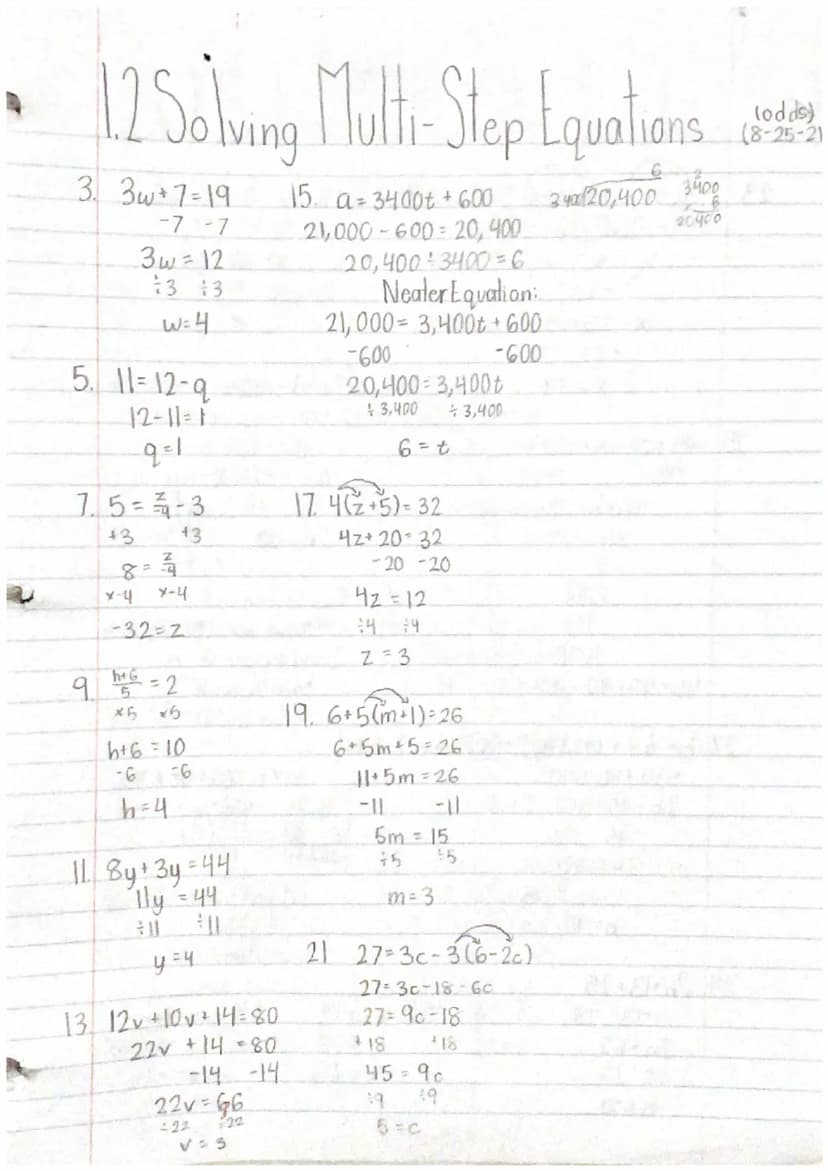 1.2 Solving Multi-Step Equations (odds)
(8-25-21
3. 3w+7=19
-7 -7
3w=12
÷3 ÷3
w=4
5. 11=12-q
12-11=1
q=1
7. 5=z/-4-3
+3 +3
8=z/-4
x-4 x-4
-32=z
9. h+6/5=2
x5 x5
h+6=10
-6 -6
h=4
11. 8y+3y=44
11y=44
÷11 ÷11
y=4
13. 12v+10v+14=80
22v+14=80
-14 -14
22v=66
÷22 ÷22
v=3
15. a=3400t+600
21,000-600=20,400
20,400÷3400=6
6
3400)20,400
2
3400
x 6
20400
Neater Equation:
21,000=3,400t+600
-600 -600
20,400=3,400t
÷3,400 ÷3,400
6=t
17. 4(z+5)=32
4z+20=32
-20 -20
4z=12
÷4 ÷4
z=3
19. 6+5(m+1)=26
6+5m+5=26
11+5m=26
-11 -11
5m=15
÷5 ÷5
m=3
21 27=3c-3(6-2c)
27=3c-18-6c
27=9c-18
+18 +18
45=9c
÷9 ÷9
5=c